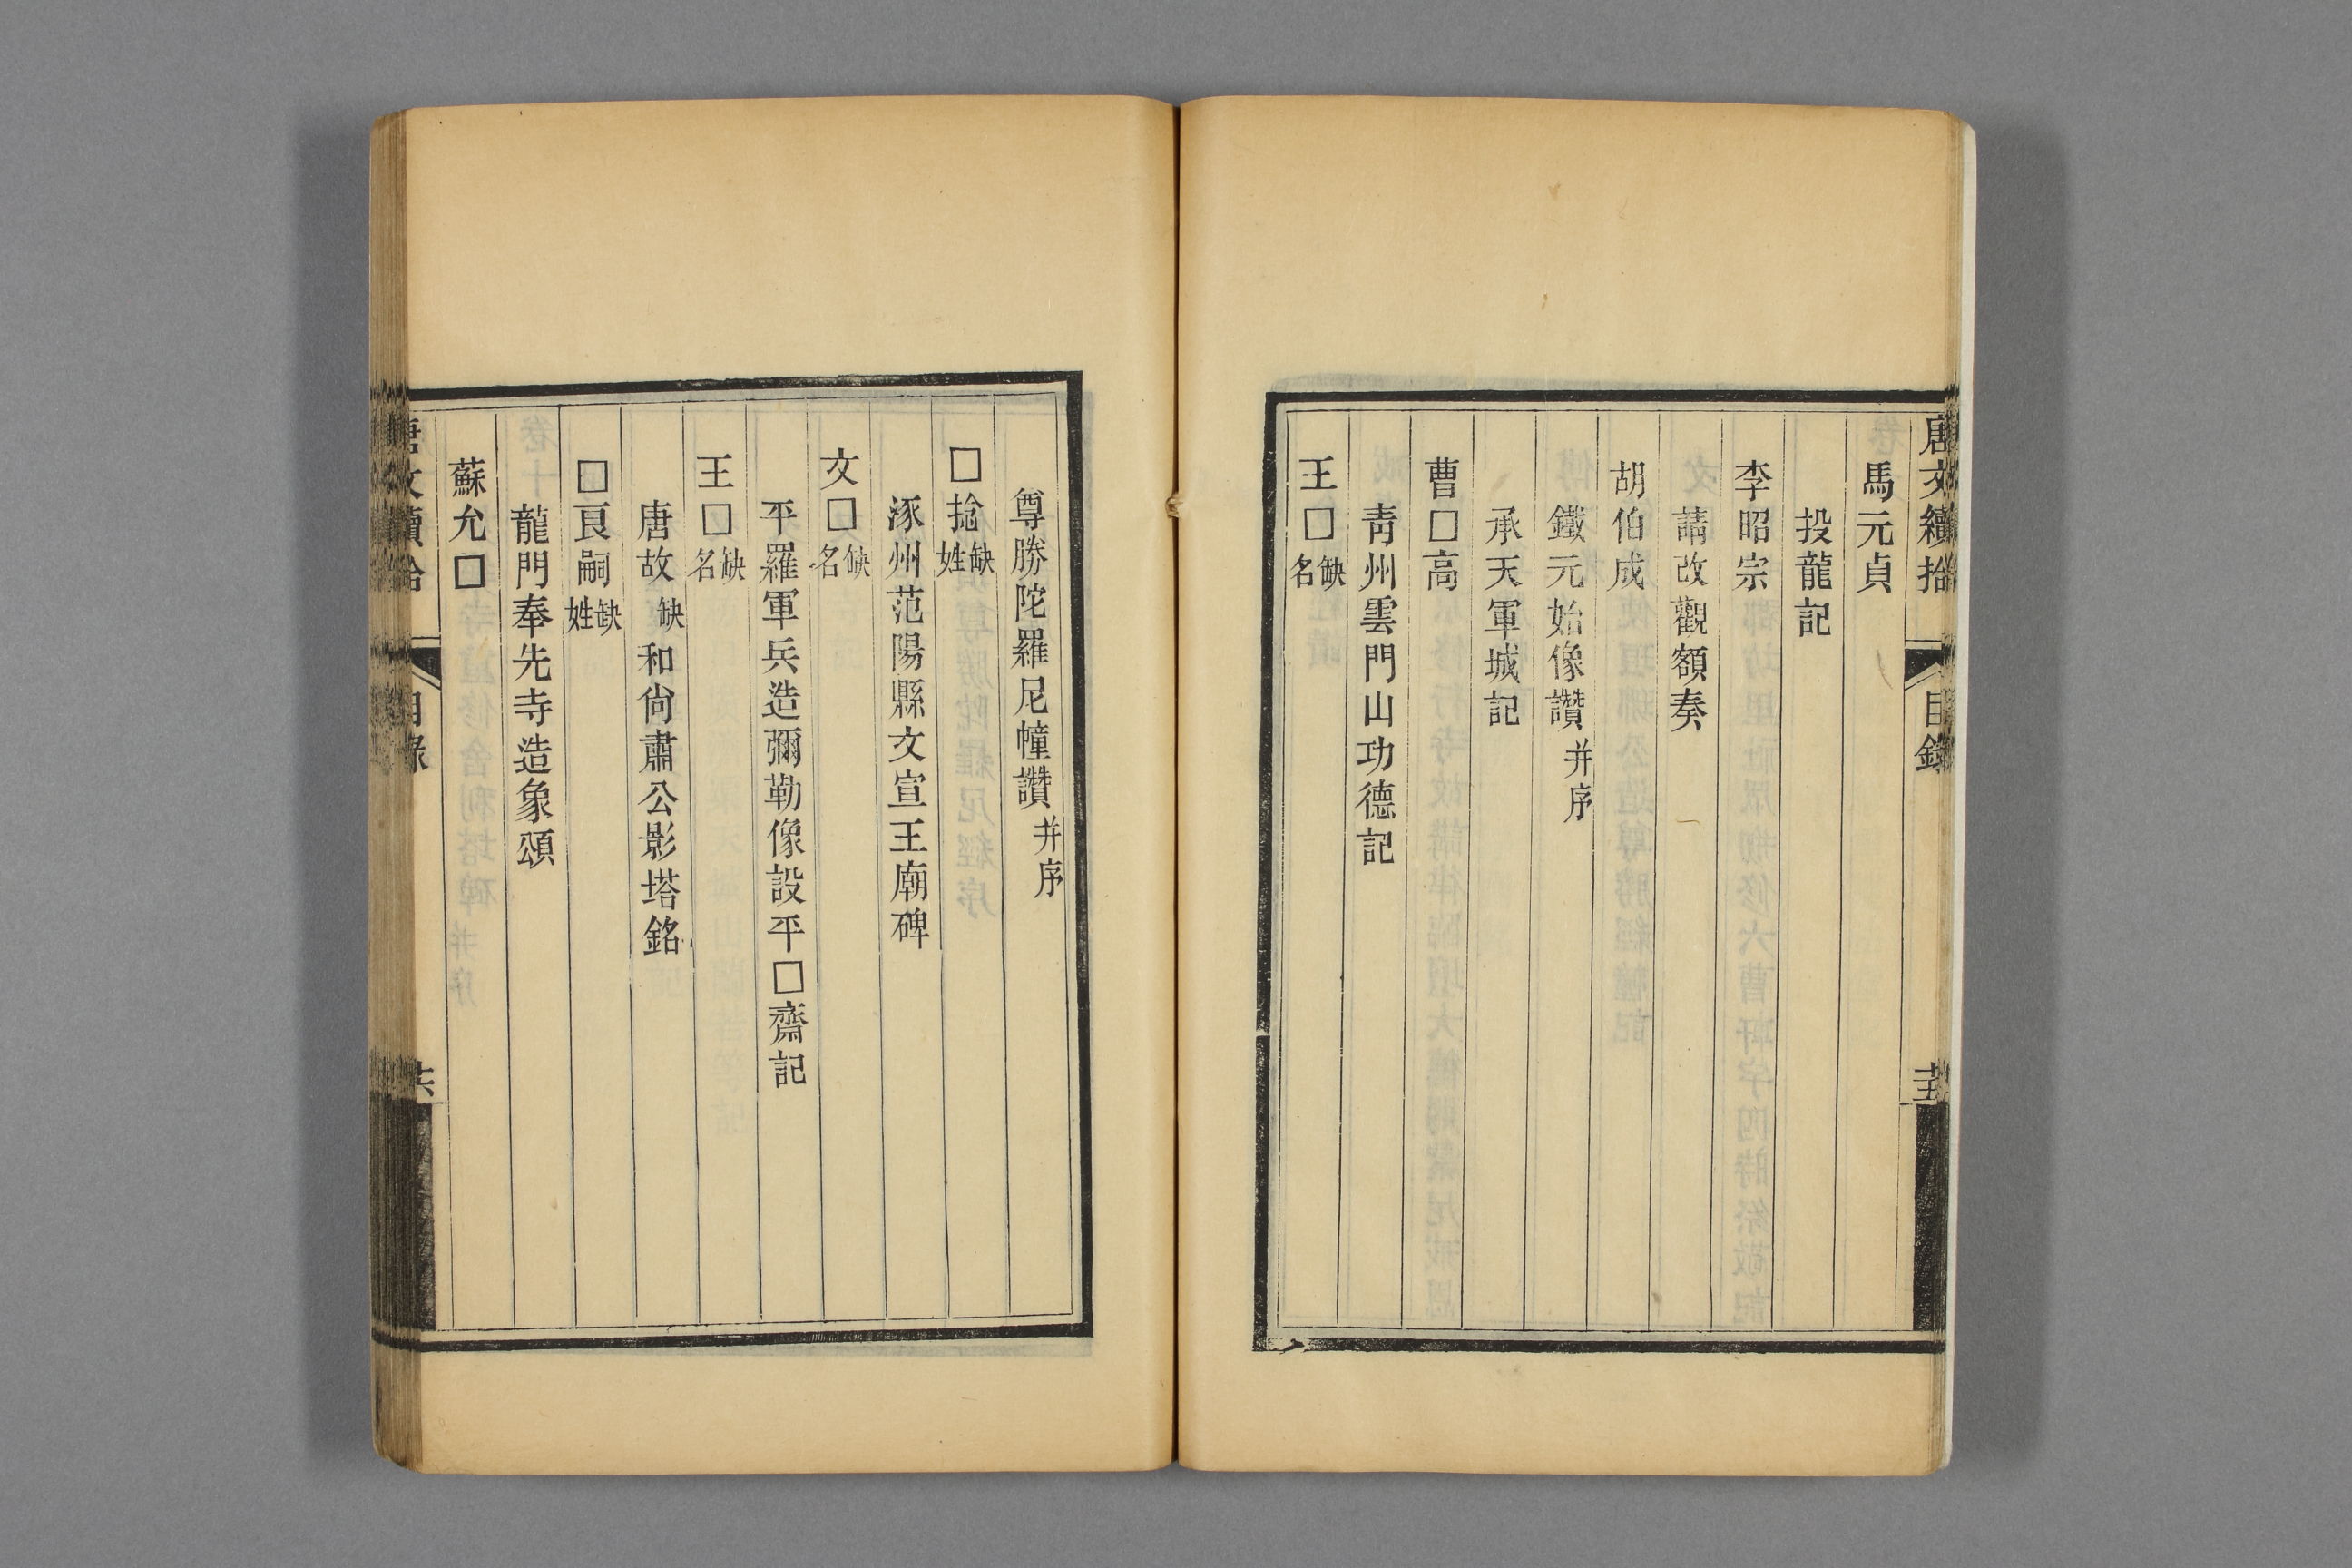 唐文續拾 目錄 十五
馬元貞
投龍記
李昭宗
請改觀額奏
胡伯成
鐵元始像讚并序
承天軍城記
曹□高
靑州雲門山功德記
王□缺名
尊勝陀羅尼幢讚并序
□捴缺姓
涿州范陽縣文宣王廟碑
文□缺名
平羅軍兵造彌勒像設平□齋記
王□缺名
唐故缺和尙肅公影塔銘
□良嗣缺姓
龍門奉先寺造象頌
蘇允□
唐文續拾 目錄 十六